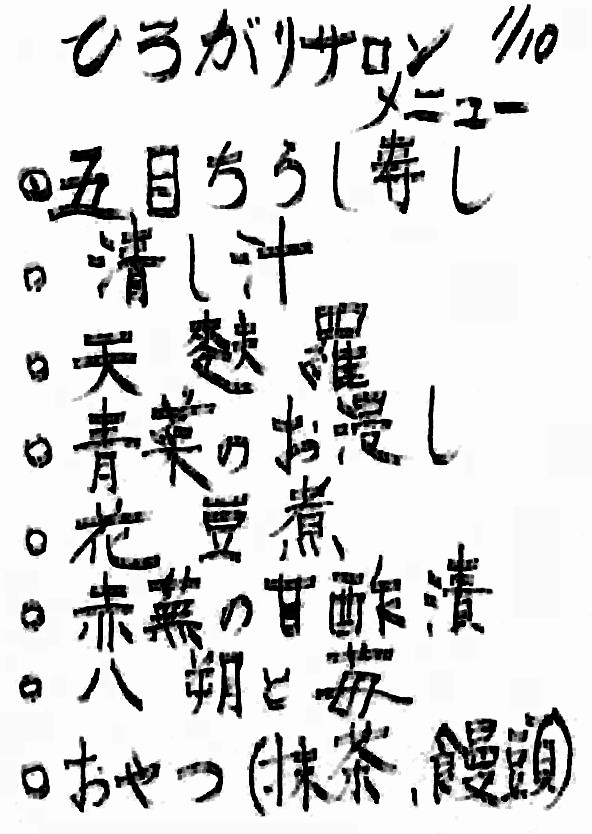 ひろがりサロン 1/10
メニュー
○五目ちらし寿し
○清し汁
○天麩羅
○青菜のお浸し
○花豆煮
○赤蕪の甘酢漬
○八朔と苺
○おやつ(抹茶、饅頭)